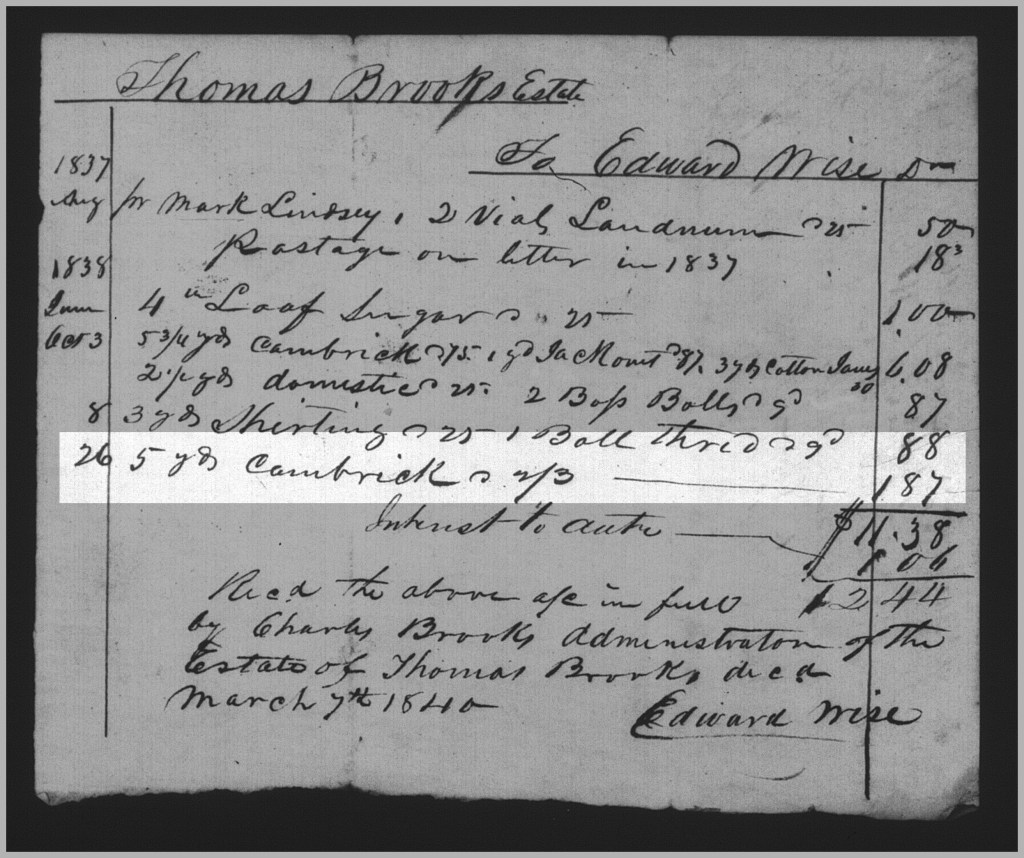 Thomas Brooks Estate
To Edward Wise Dr
1837
Aug pr Mark Lindsey, 2 Vials Landnum @ 25 50
Postage on letter in 1837 18³
1838
June 4 lb Loaf Sugar @ 25 1.00
Oct 3 5 3/4 yds Cambrick @ 75. 1 yd Jackonet @ 87. 3 yds Cotton 50 6.08
2 1/2 yds domestic @ 25. 2 Boss Balls @ 9d 87
8 3 yds Shirting @ 25 1 Ball thred @ 9d 88
26 5 yds Cambrick @ 2/3 1 87
$ 11.38
Interest to date 1 06
12 44
Recd the above a/c in full
by Charles Brooks Administrator of the
Estate of Thomas Brooks decd
March 7th 1840
Edward Wise